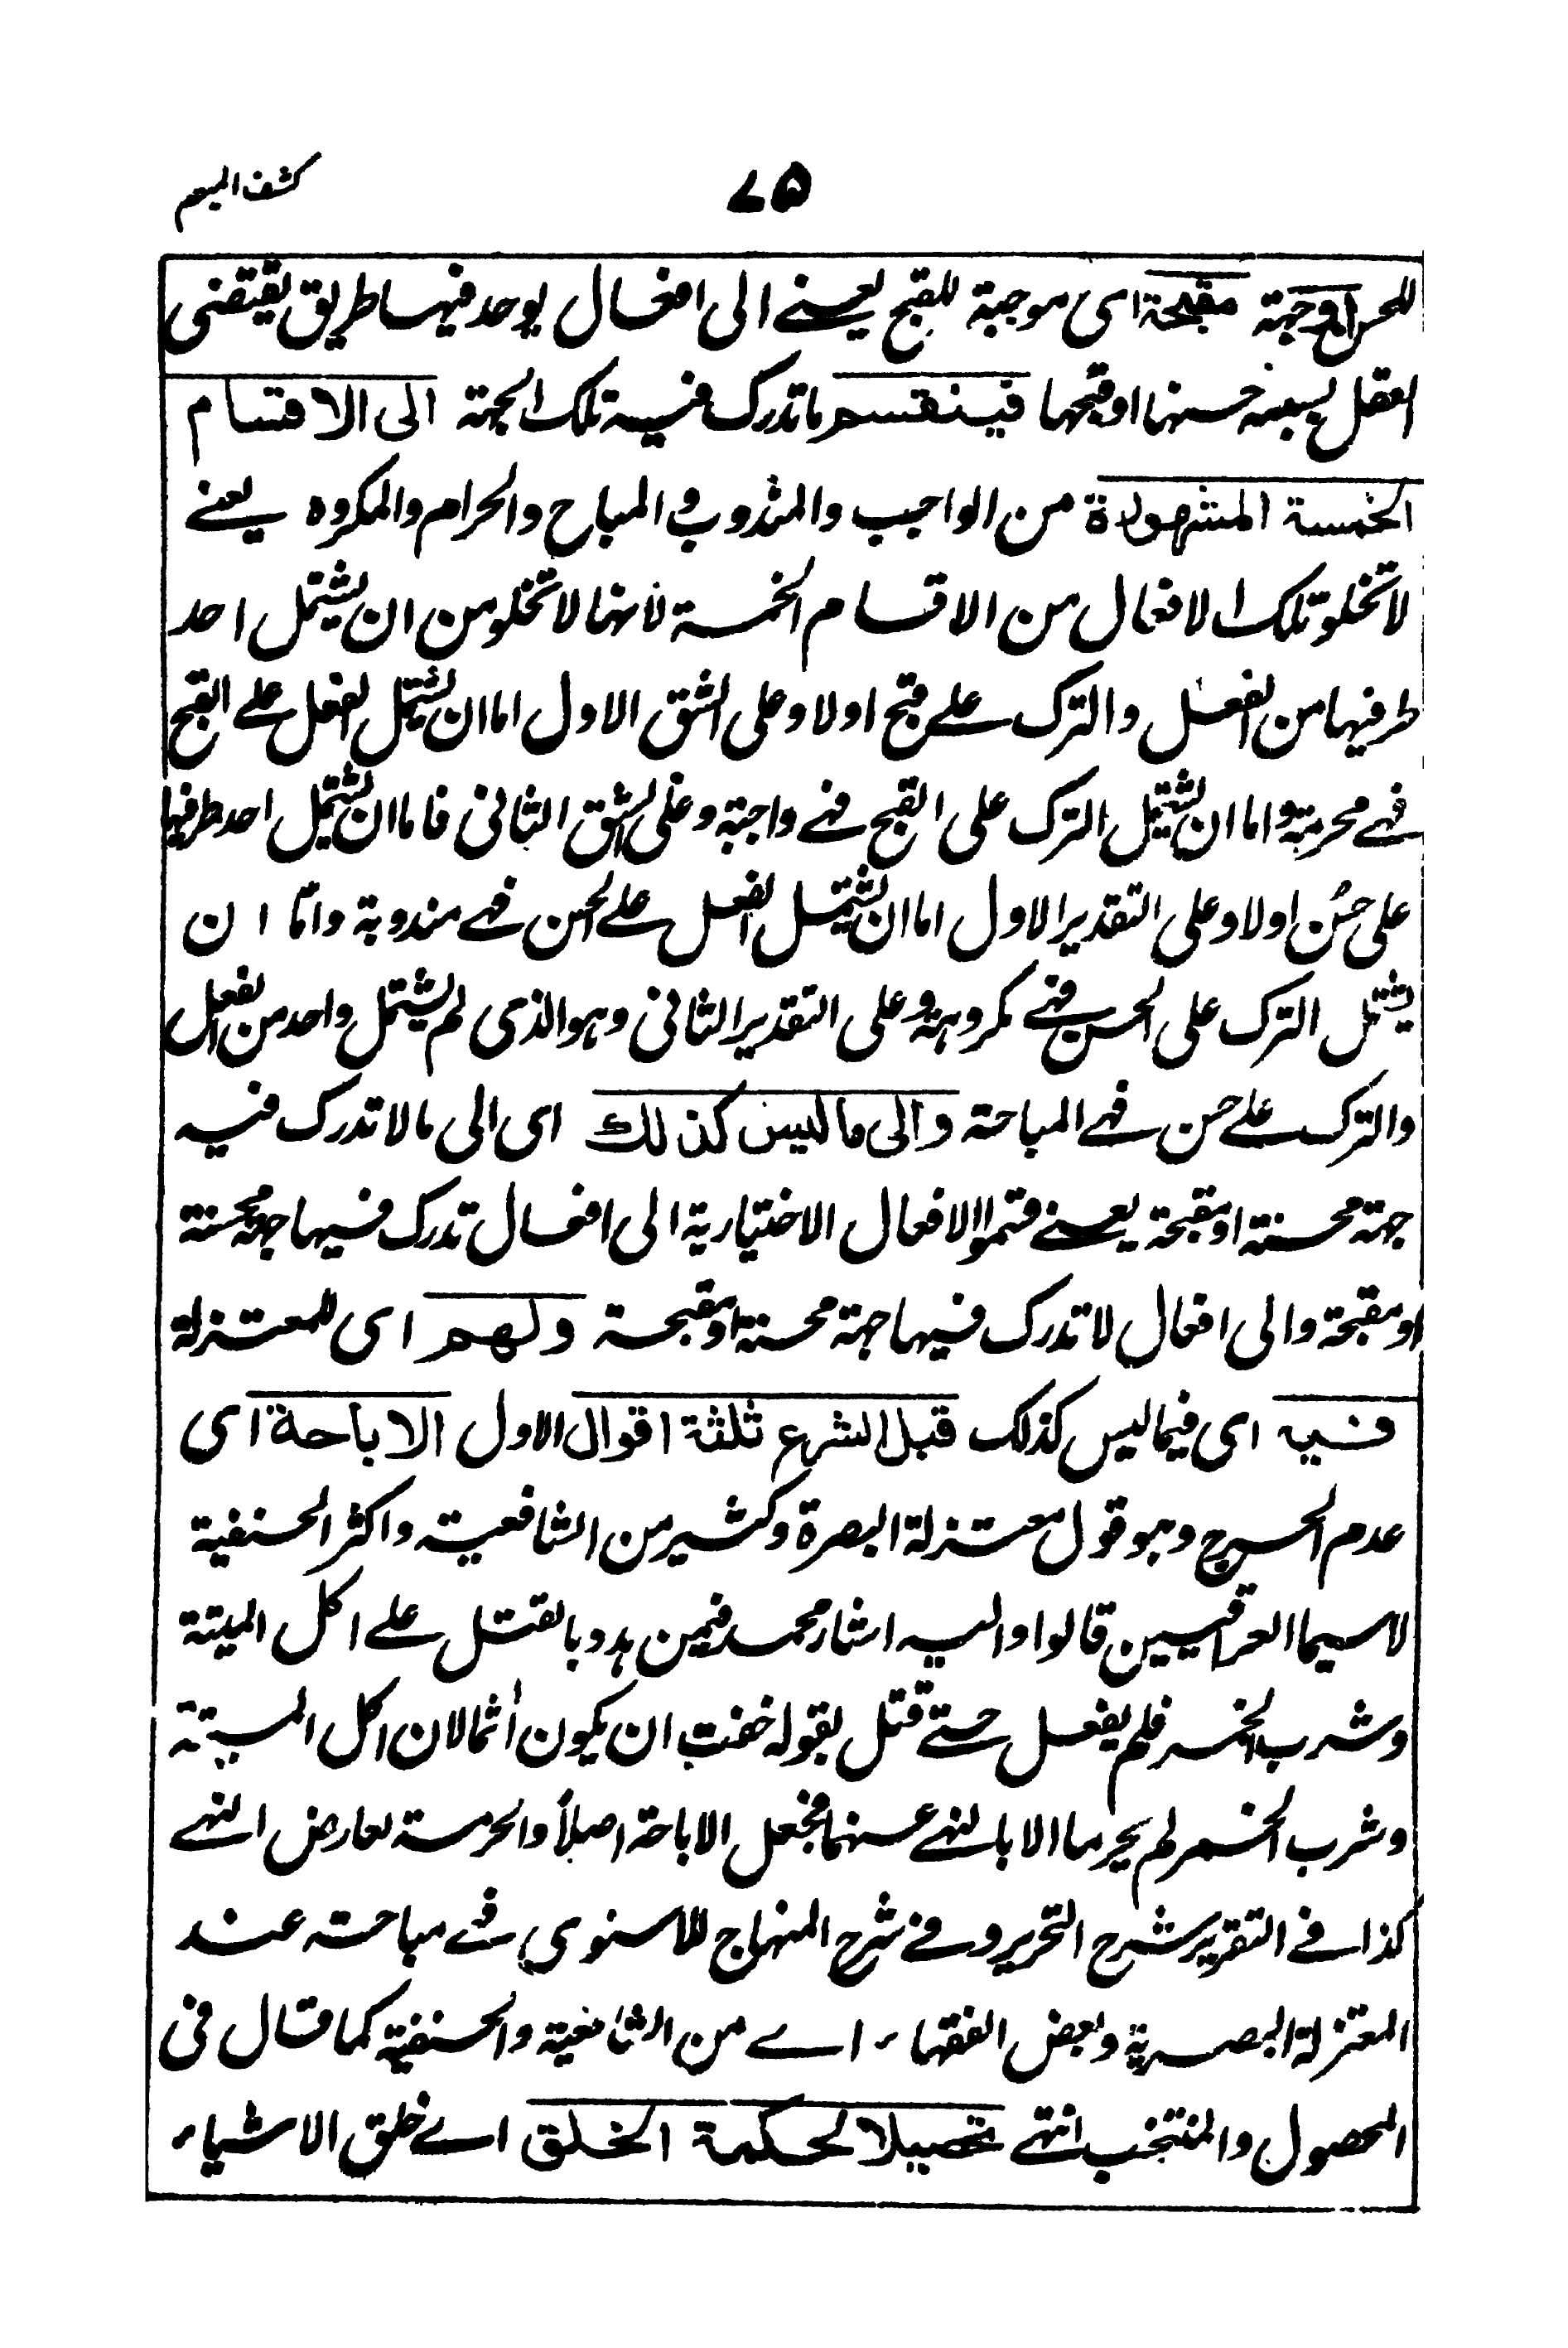 كشف المبهم
٧٥
للحسن او جهة مقبحة اى موجبة للقبح يعنے الى افعال يوجد فيها طريق يقتضى
العقل بسببه حسنها او قبحها فينقسم ما تدرك فيه تلك الجهة الى الاقسام
الخمسة المشهورة من الواجب والمندوب و المباح والحرام والمكروه يعنے
لا تخلو تلك الافعال من الاقسام الخمسة لانها لا تخلو من ان يشتمل احد
طرفيها من الفعل والترك علے قبح اولا وعلى الشق الاول اما ان يشتمل الفعل علے القبح
فهے محرمة واما ان يشتمل الترك على القبح فهے واجبة وعلى الشق الثانى فاما ان يشتمل احد طرفيها
على حسُن اولا وعلى التقدير الاول اما ان يشتمل الفعل علے الحسن فهے مندوبة وامّا ان
يشتمل الترك على الحسن فهے مكروهة وعلى التقدير الثانى وهو الذى لم يشتمل واحد من الفعل
والترك علے حسن فهے المباحة والى ما ليس كذلك اى الى ما لا تدرك فيه
جهة محسنة او مقبحة يعنے قسموا الافعال الاختيارية الى افعال تدرك فيها جهة محسنة
او مقبحة والى افعال لا تدرك فيها جهة محسنة او مقبحة ولهم اى للمعتزلة
فيه اى فيما ليس كذلك قبل الشرع ثلثة اقوال الاول الاباحة اى
عدم الحرج وهو قول معتزلة البصرة وكثير من الشافعية واكثر الحنفية
لاسيما العراقيين قالوا واليه اشار محمد فيمن هدد بالقتل علے اكل الميتة
وشرب الخمر فلم يفعل حتے قتل بقوله خفت ان يكون اثما لان اكل الميتة
وشرب الخمر لم يحرما الا بالنهے عنهما فجعل الاباحة اصلاً والحرمة بعارض النهے
كذا فے التقرير شرح التحرير و فے شرح المنهاج للاسنوى فهے مباحة عند
المعتزلة البصرية وبعض الفقهاء اے من الشافعية والحنفية كما قال فى
المحصول والمنتخب انتهے تحصيلا لحكمة الخلق اے خلق الاشياء